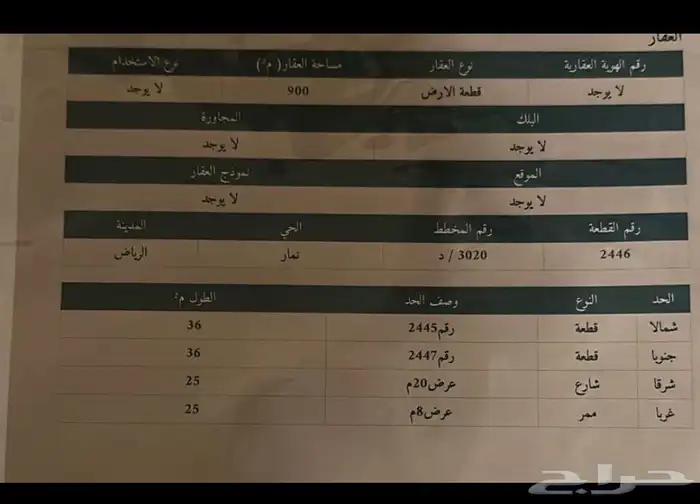 العقار
رقم الهوية العقارية نوع العقار مساحة العقار( م²) نوع الاستخدام
لا يوجد قطعة الارض 900 لا يوجد
البلك المجاورة
لا يوجد لا يوجد
الموقع نموذج العقار
لا يوجد لا يوجد
رقم القطعة رقم المخطط الحي المدينة
2446 3020 / د نمار الرياض
الحد النوع وصف الحد الطول م²
شمالا قطعة رقم2445 36
جنوبا قطعة رقم2447 36
شرقا شارع عرض20م 25
غربا ممر عرض8م 25
حراج